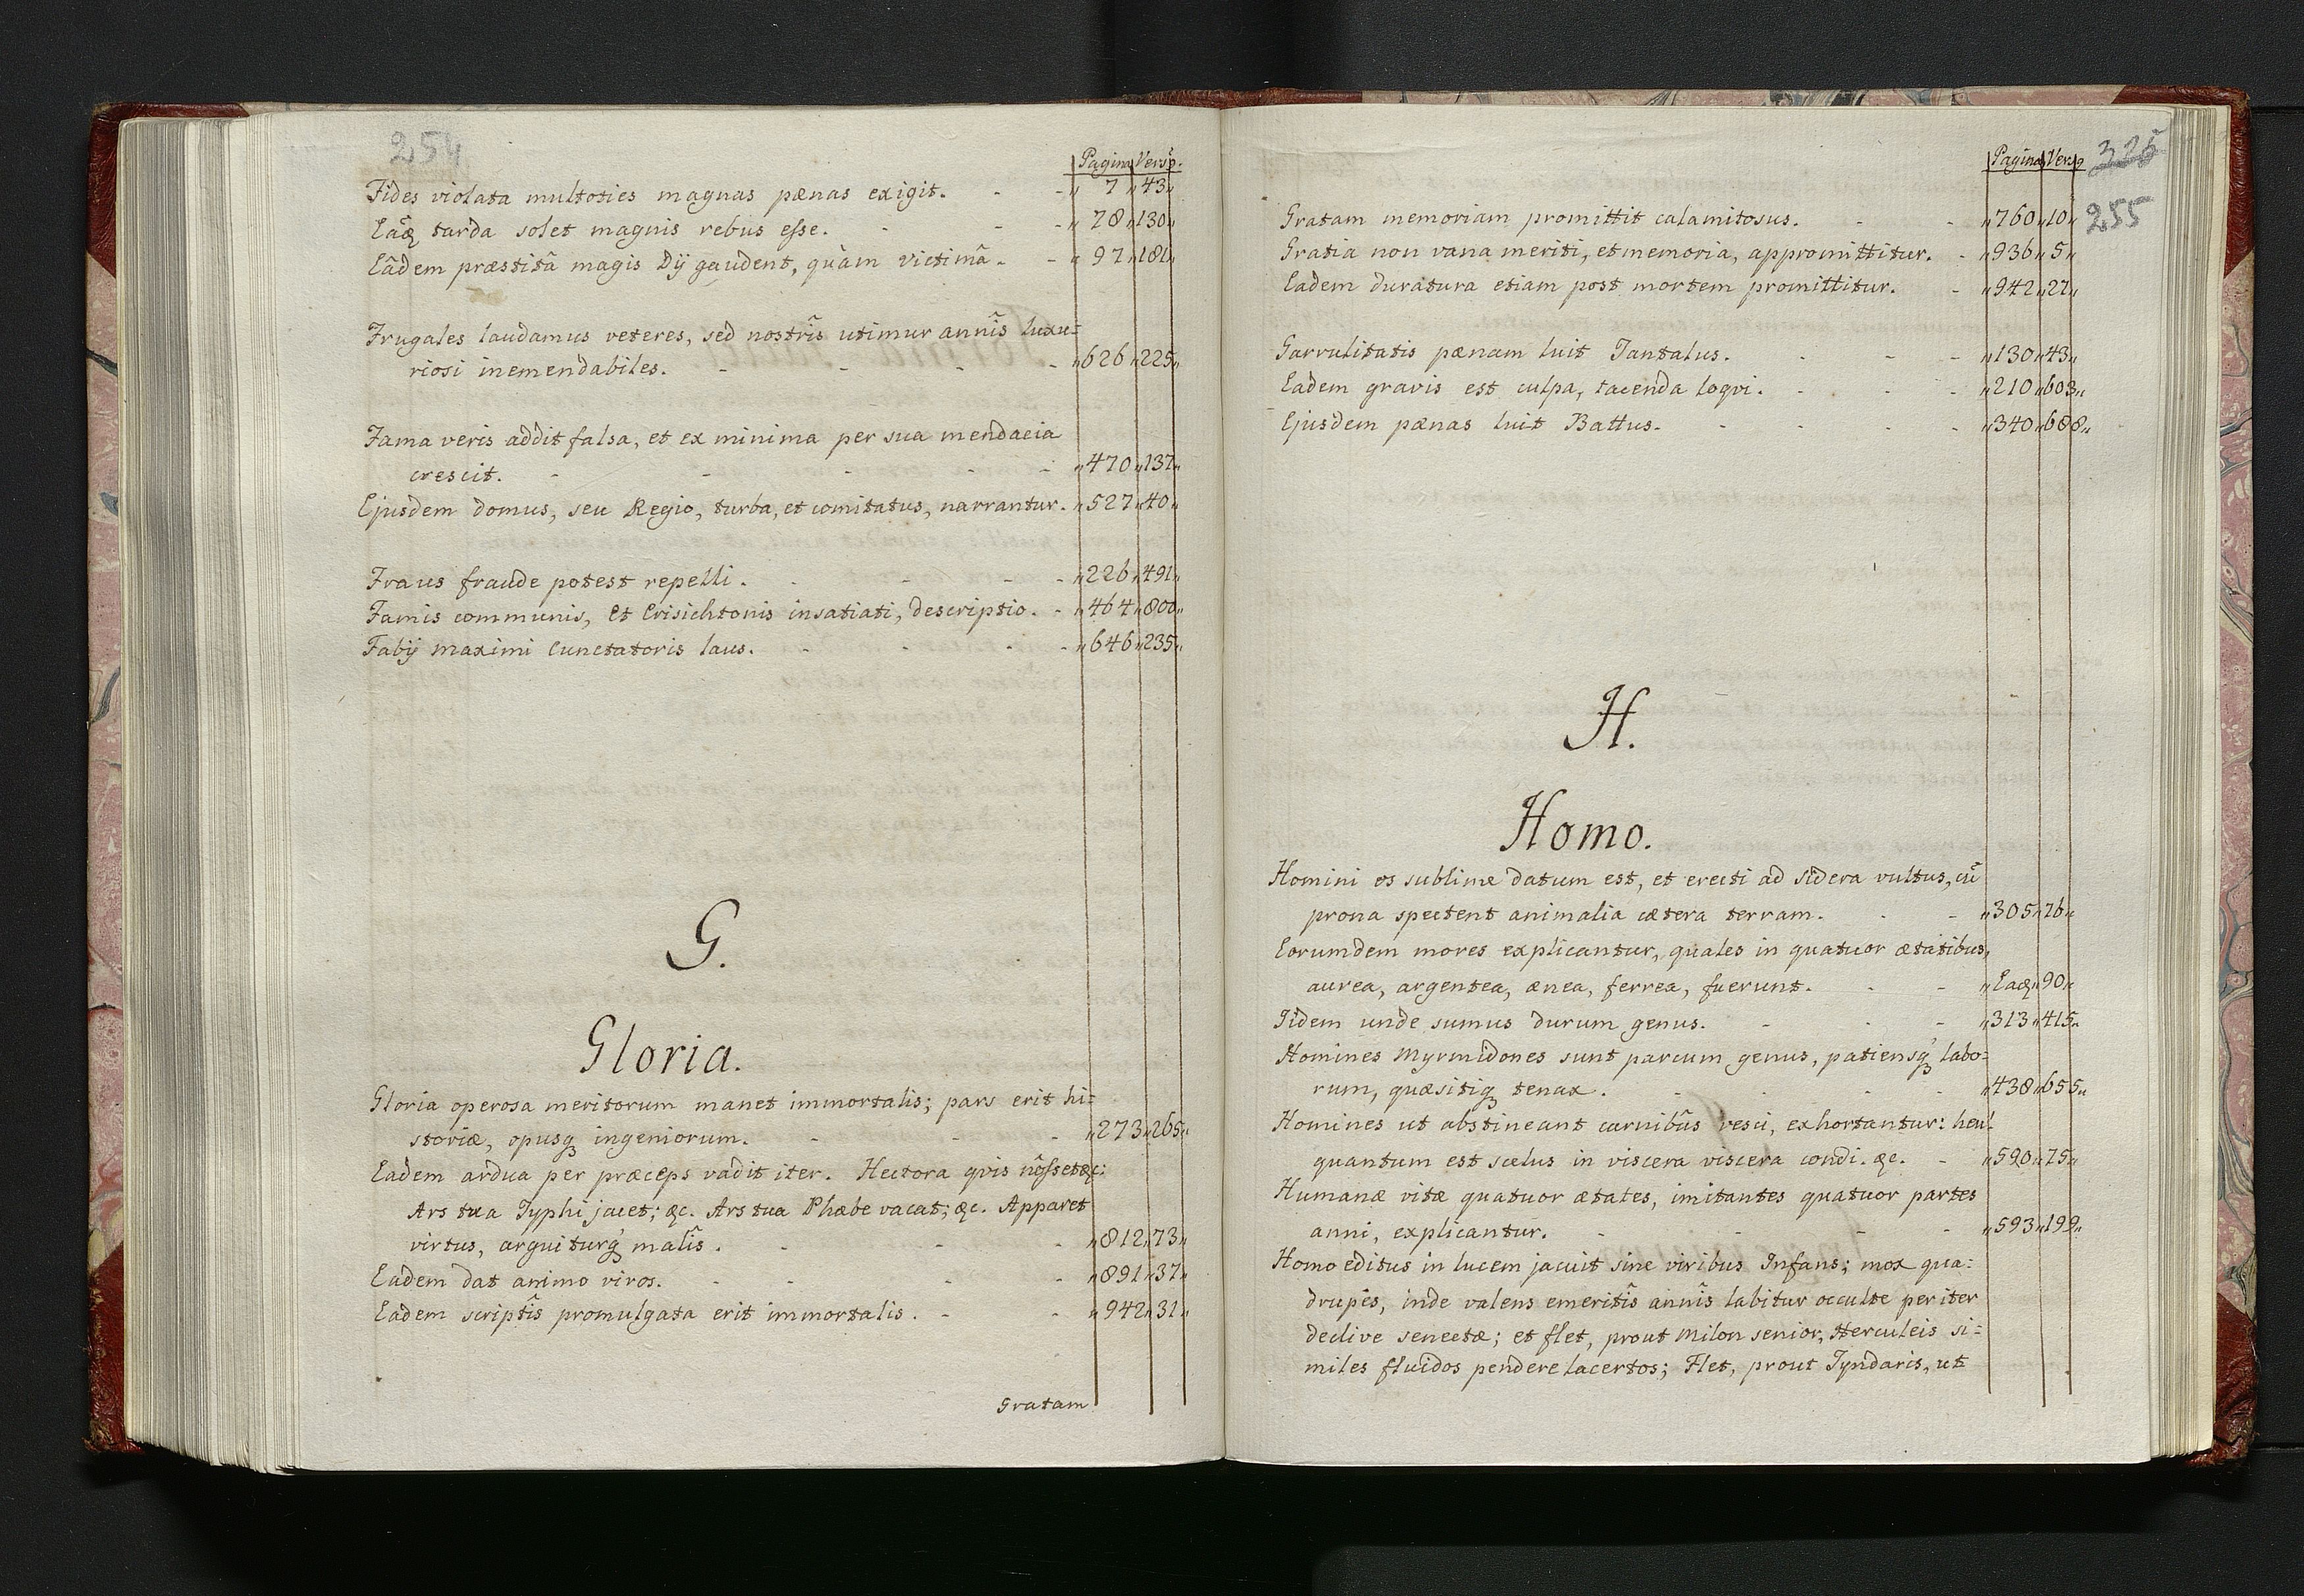 254
Pagina Versq.
Fides violata multoties magnas pænas exigit. - - „ 7 „ 43 „
Eâdē tarda solet magnis rebus esse. - - - „ 78 „ 130 „
Eâdem præstitâ magis Dÿ gaudent, quàm victimâ. - - „ 97 „ 181 „
Frugales laudamus veteres, sed nostrîs utimur annîs luxu=
riosi inemendabiles. - - - - „ 626 „ 225 „
Fama veris addit falsa, et ex minima per sua mendacia
crescit. - - - - - „ 470 „ 137 „
Ejusdem domus, seu Regio, turba, et comitatus, narrantur. „ 527 „ 40 „
Fraus fraude potest repelli. - - - - „ 226 „ 491 „
Famis communis, Et Erisichtonis insatiati, descriptio. - „ 464 „ 800 „
Fabÿ maximi Cunctatoris laus. - - - - „ 646 „ 235 „
G.
Gloria.
Gloria operosa meritorum manet immortalis; pars erit hi=
storiæ, opusq₃ ingeniorum. - - - „ 273 „ 265 „
Eadem ardua per præceps vadit iter. Hectora qvis nôsset &c:
Ars tua Typhi jacet; &c. Ars tua Phæbe vacat; &c. Apparet
virtus, arguiturq₃ malîs. - - - „ 812 „ 73 „
Eadem dat animo viros. - - - - „ 891 „ 37 „
Eadem scriptîs promulgata erit immortalis. - - „ 942 „ 31 „
Gratam
Pagina Versq
325
255
Gratam memoriam promittit calamitosus. - - „ 760 „ 10 „
Gratia non vana meriti, et memoria, appromittitur. - „ 936 „ 5 „
Eadem duratura etiam post mortem promittitur. - „ 942 „ 27 „
Garrulitatis pænam luit Tantalus. - - - „ 130 „ 43 „
Eadem gravis est culpa, tacenda loqvi. - - - „ 210 „ 603 „
Ejusdem pænas luit Battus. - - - - „ 340 „ 688 „
H.
Homo.
Homini os sublime datum est, et erecti ad sidera vultus, cū
prona spectent animalia cætera terram. - - „ 305 „ 76 „
Eorumdem mores explicantur, quales in quatuor ætatibus,
aurea, argentea, ænea, ferrea, fuerunt. - - „ Eaq₃ „ 90 „
Iidem unde sumus durum genus. - - - „ 313 „ 415 „
Homines Myrmidones sunt parcum genus, patiensq₃ labo=
rum, quæsitiq₃ tenax. - - - - „ 438 „ 655 „
Homines ut abstineant carnibûs vesci, exhortantur: heu!
quantum est scelus in viscera viscera condi. &c. - „ 590 „ 75 „
Humanæ vitæ quatuor ætates, imitantes quatuor partes
anni, explicantur. - - - - „ 593 „ 199 „
Homo editus in lucem jacuit sine viribus Infans; mox qua=
drupes, inde valens emeritîs annîs labitur occulte per iter
declive senectæ; et flet, prout Milon senior, Herculeis si=
miles fluidos pendere lacertos; Flet, prout Tyndaris, ut